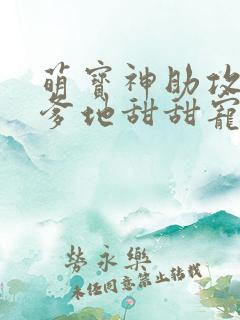 萌寳神助攻
爹地甜甜寵
勞永樂
未經同意禁止轉載